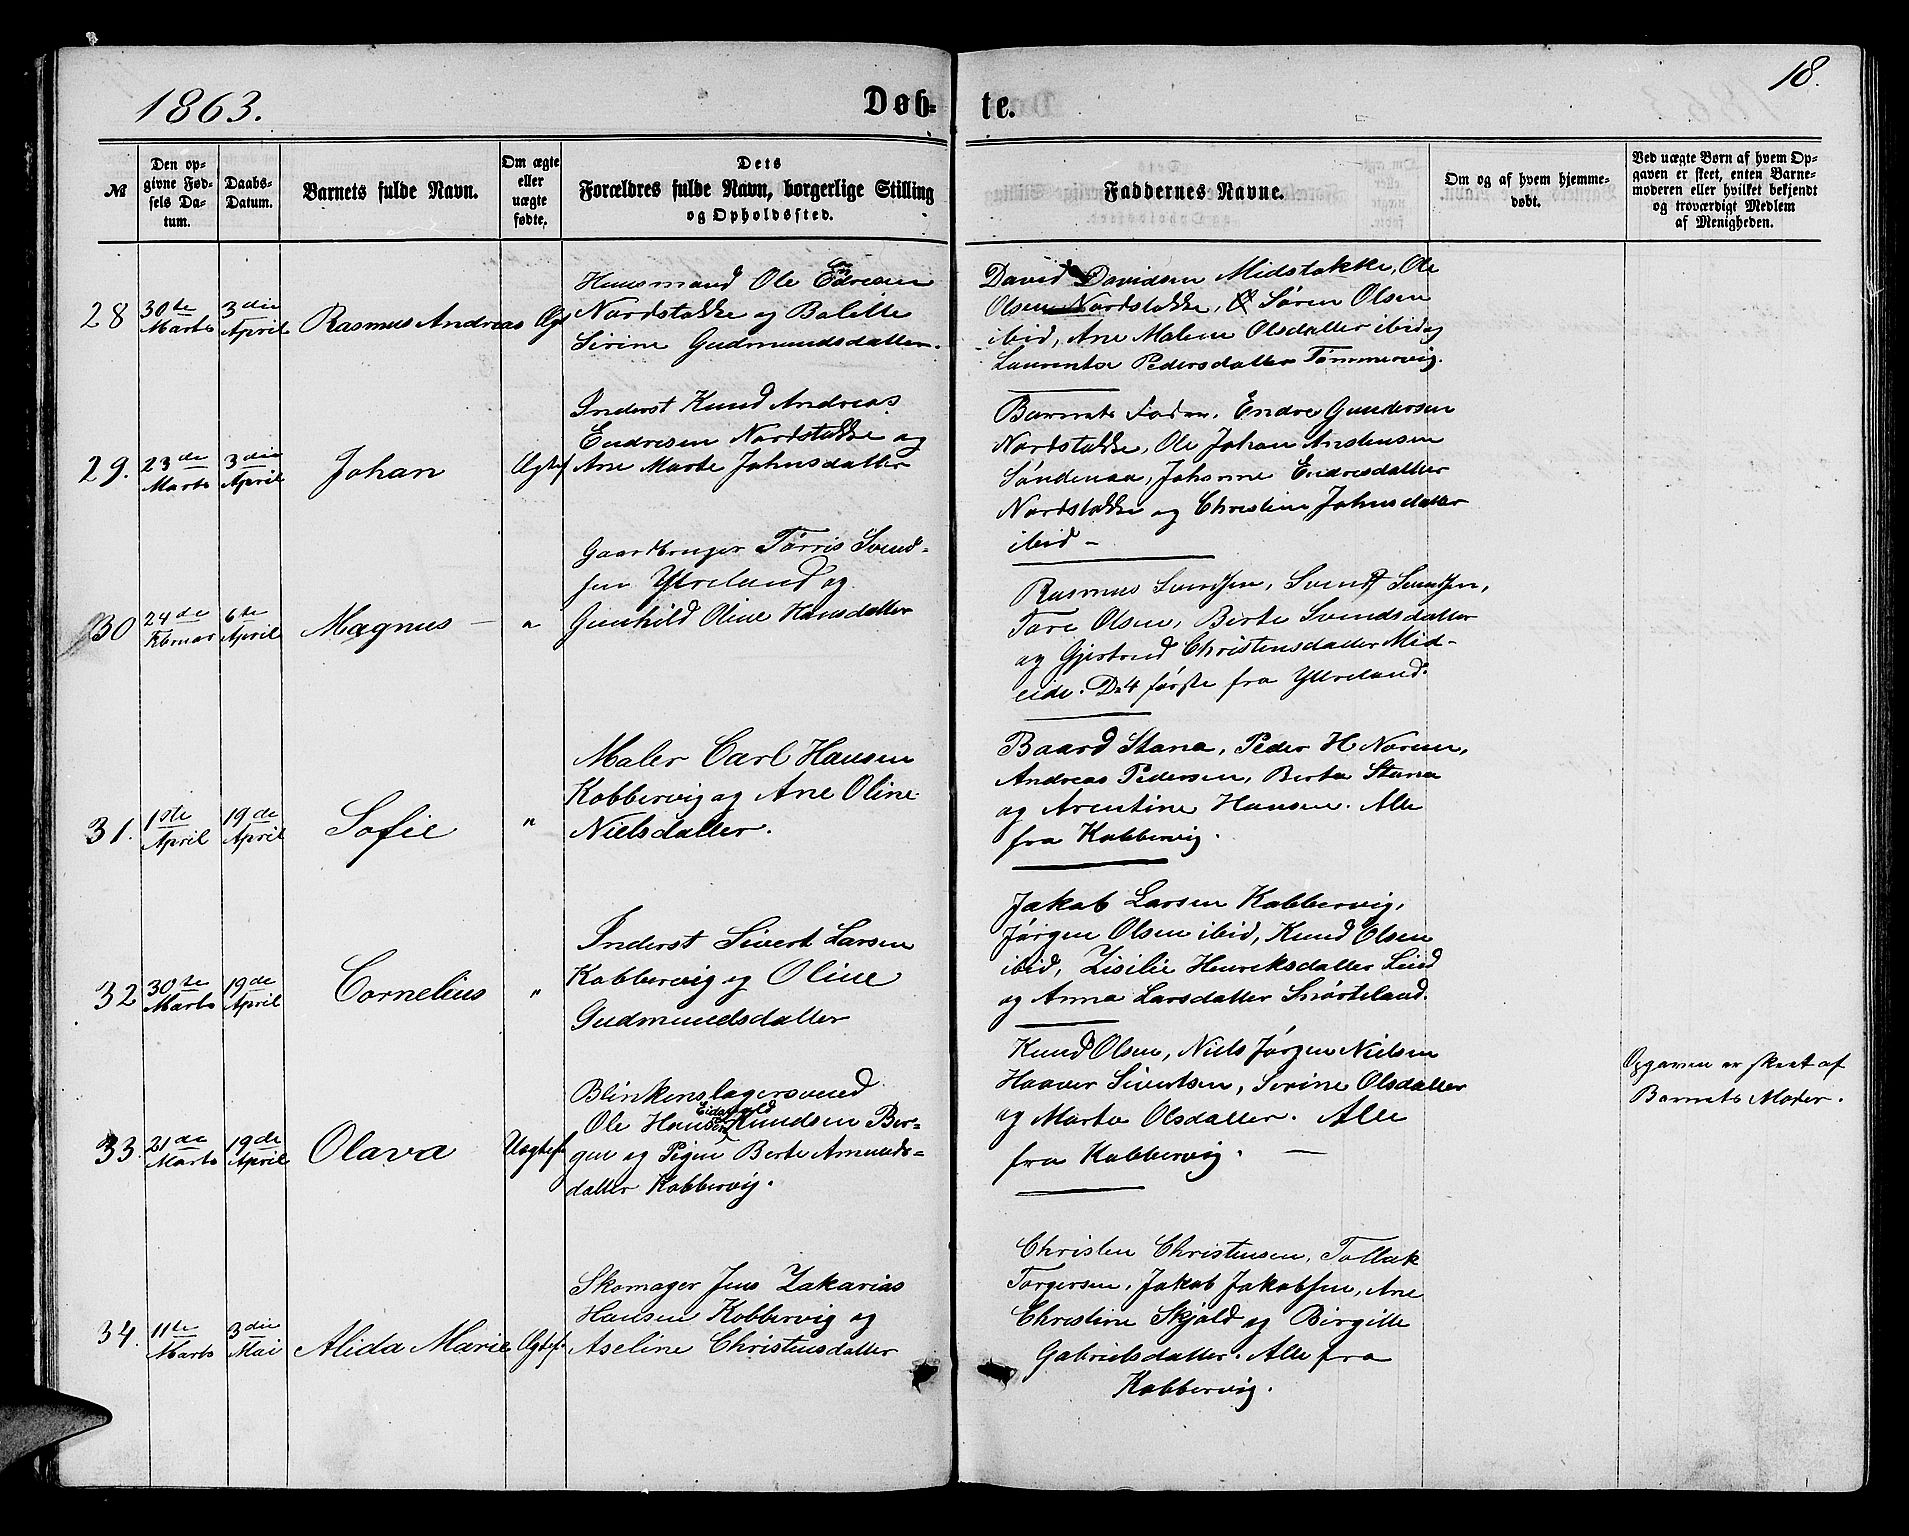 1863.
Døb-
te.
18.
№
Den op-
givne Fød-
sels Da-
tum.
Daabs-
Datum.
Barnets fulde Navn.
Om ægte
eller
uægte
fødte.
Dets
Forældres fulde Navn, borgerlige Stilling
og Opholdssted.
Faddernes Navne.
Om og af hvem hjemme-
døbt.
Ved uægte Børn af hvem Op-
gaven er skeet, enten Barne-
moderen eller hvilket bekjendt
og troværdigt Medlem
af Menigheden.
28
30te
Marts
3die
April
Rasmus Andreas
Ægt
Huusmand Ole
Nordstokke og Bolette
Serine Gudmundsdatter.
David Davidsen Midstokke, Ole
Olsen Nordstokke, Søren Olsen
ibid, Ane Malene Olsdatter ibid og
Laurentse Pedersdatter Tømmervig.
29.
23de
Marts
3die
April
Johan
Ægtef
Inderst Knud Andreas
Endresen Nordstokke og
Ane Marte Johnsdatter
Barnets Fader, Endre Gundersen
Nordstokke, Ole Johan Anstensen
Søndenaa, Johanne Endresdatter
Nordstokke og Christine Johnsdatter
ibid -
30
24de
Februar
6te
April
Magnus
"
Gaardbruger Tørris Svend-
sen Ytreland og
Gunhild Oline Hansdatter
Rasmus Svendsen, Svend Svendsen,
Tore Olsen, Berte Svendsdatter
og Gjertrud Christensdatter Mid-
eide. De 4 første fra Ytreland.
31.
1ste
April
19de
April
Sofie
"
Maler Carl Hansen
Kobbervig og Ane Oline
Nielsdatter.
Baard Stana, Peder H Noren,
Andreas Pedersen, Berta Stana
og Arentine Hansen. Alle
fra Kobbervig.
32
30te
Marts
19de
April
Cornelius
"
Inderst Sivert Larsen
Kobbervig og Oline
Gudmundsdatter
Jakob Larsen Kobbervig,
Jørgen Olsen ibid, Knud Olsen
ibid, Zisilie Henriksdatter Lind
og Anna Larsdatter Snørteland.
33.
21de
Marts
19de
April
Olava
Uægtef
Blikkenslagersvend
Ole Hansen Knudsen Ber-
gen og Pigen Berte Amunds-
datter Kobbervig.
Knud Olsen, Niels Jørgen Nielsen
Haaver Sivertsen, Serine Olsdatter
og Marta Olsdatter. Alle
fra Kobbervig. —
Opgaven er skeet af
Barnets Moder.
34.
11te
Marts
3die
Mai
Alida Marie
Ægtef.
Skomager Jens Zakarias
Hansen Kobbervig og
Aseline Christensdatter
Christen Christensen, Tollak
Torgersen, Jakob Jakobsen, Ane
Christine Skjold og Birgitte
Gabrielsdatter. Alle fra
Kobbervig.